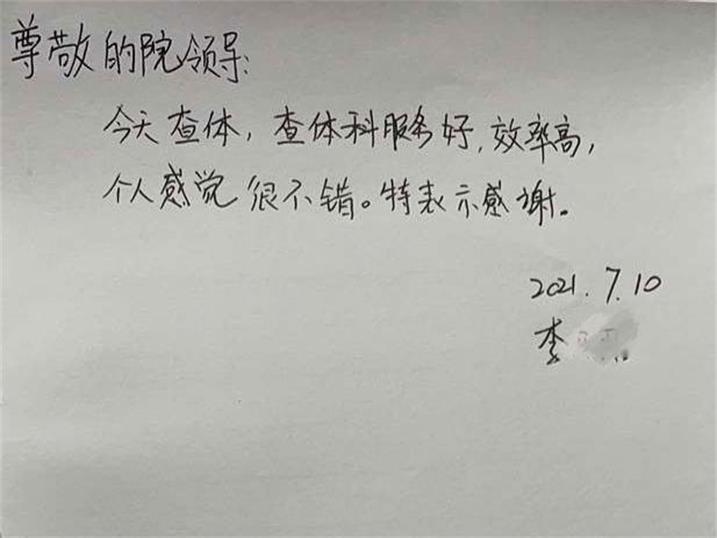 尊敬的院领导:
今天查体,查体科服务好,效率高,
个人感觉很不错。特表示感谢。
2021.7.10
李